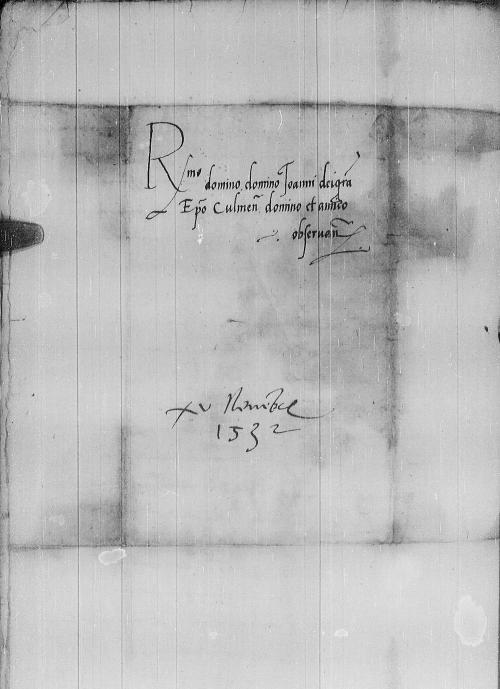 Rmo domino domino Joanni dei gra
Epo Culmeñ domino et amico
observañ
XV Novembr
1532